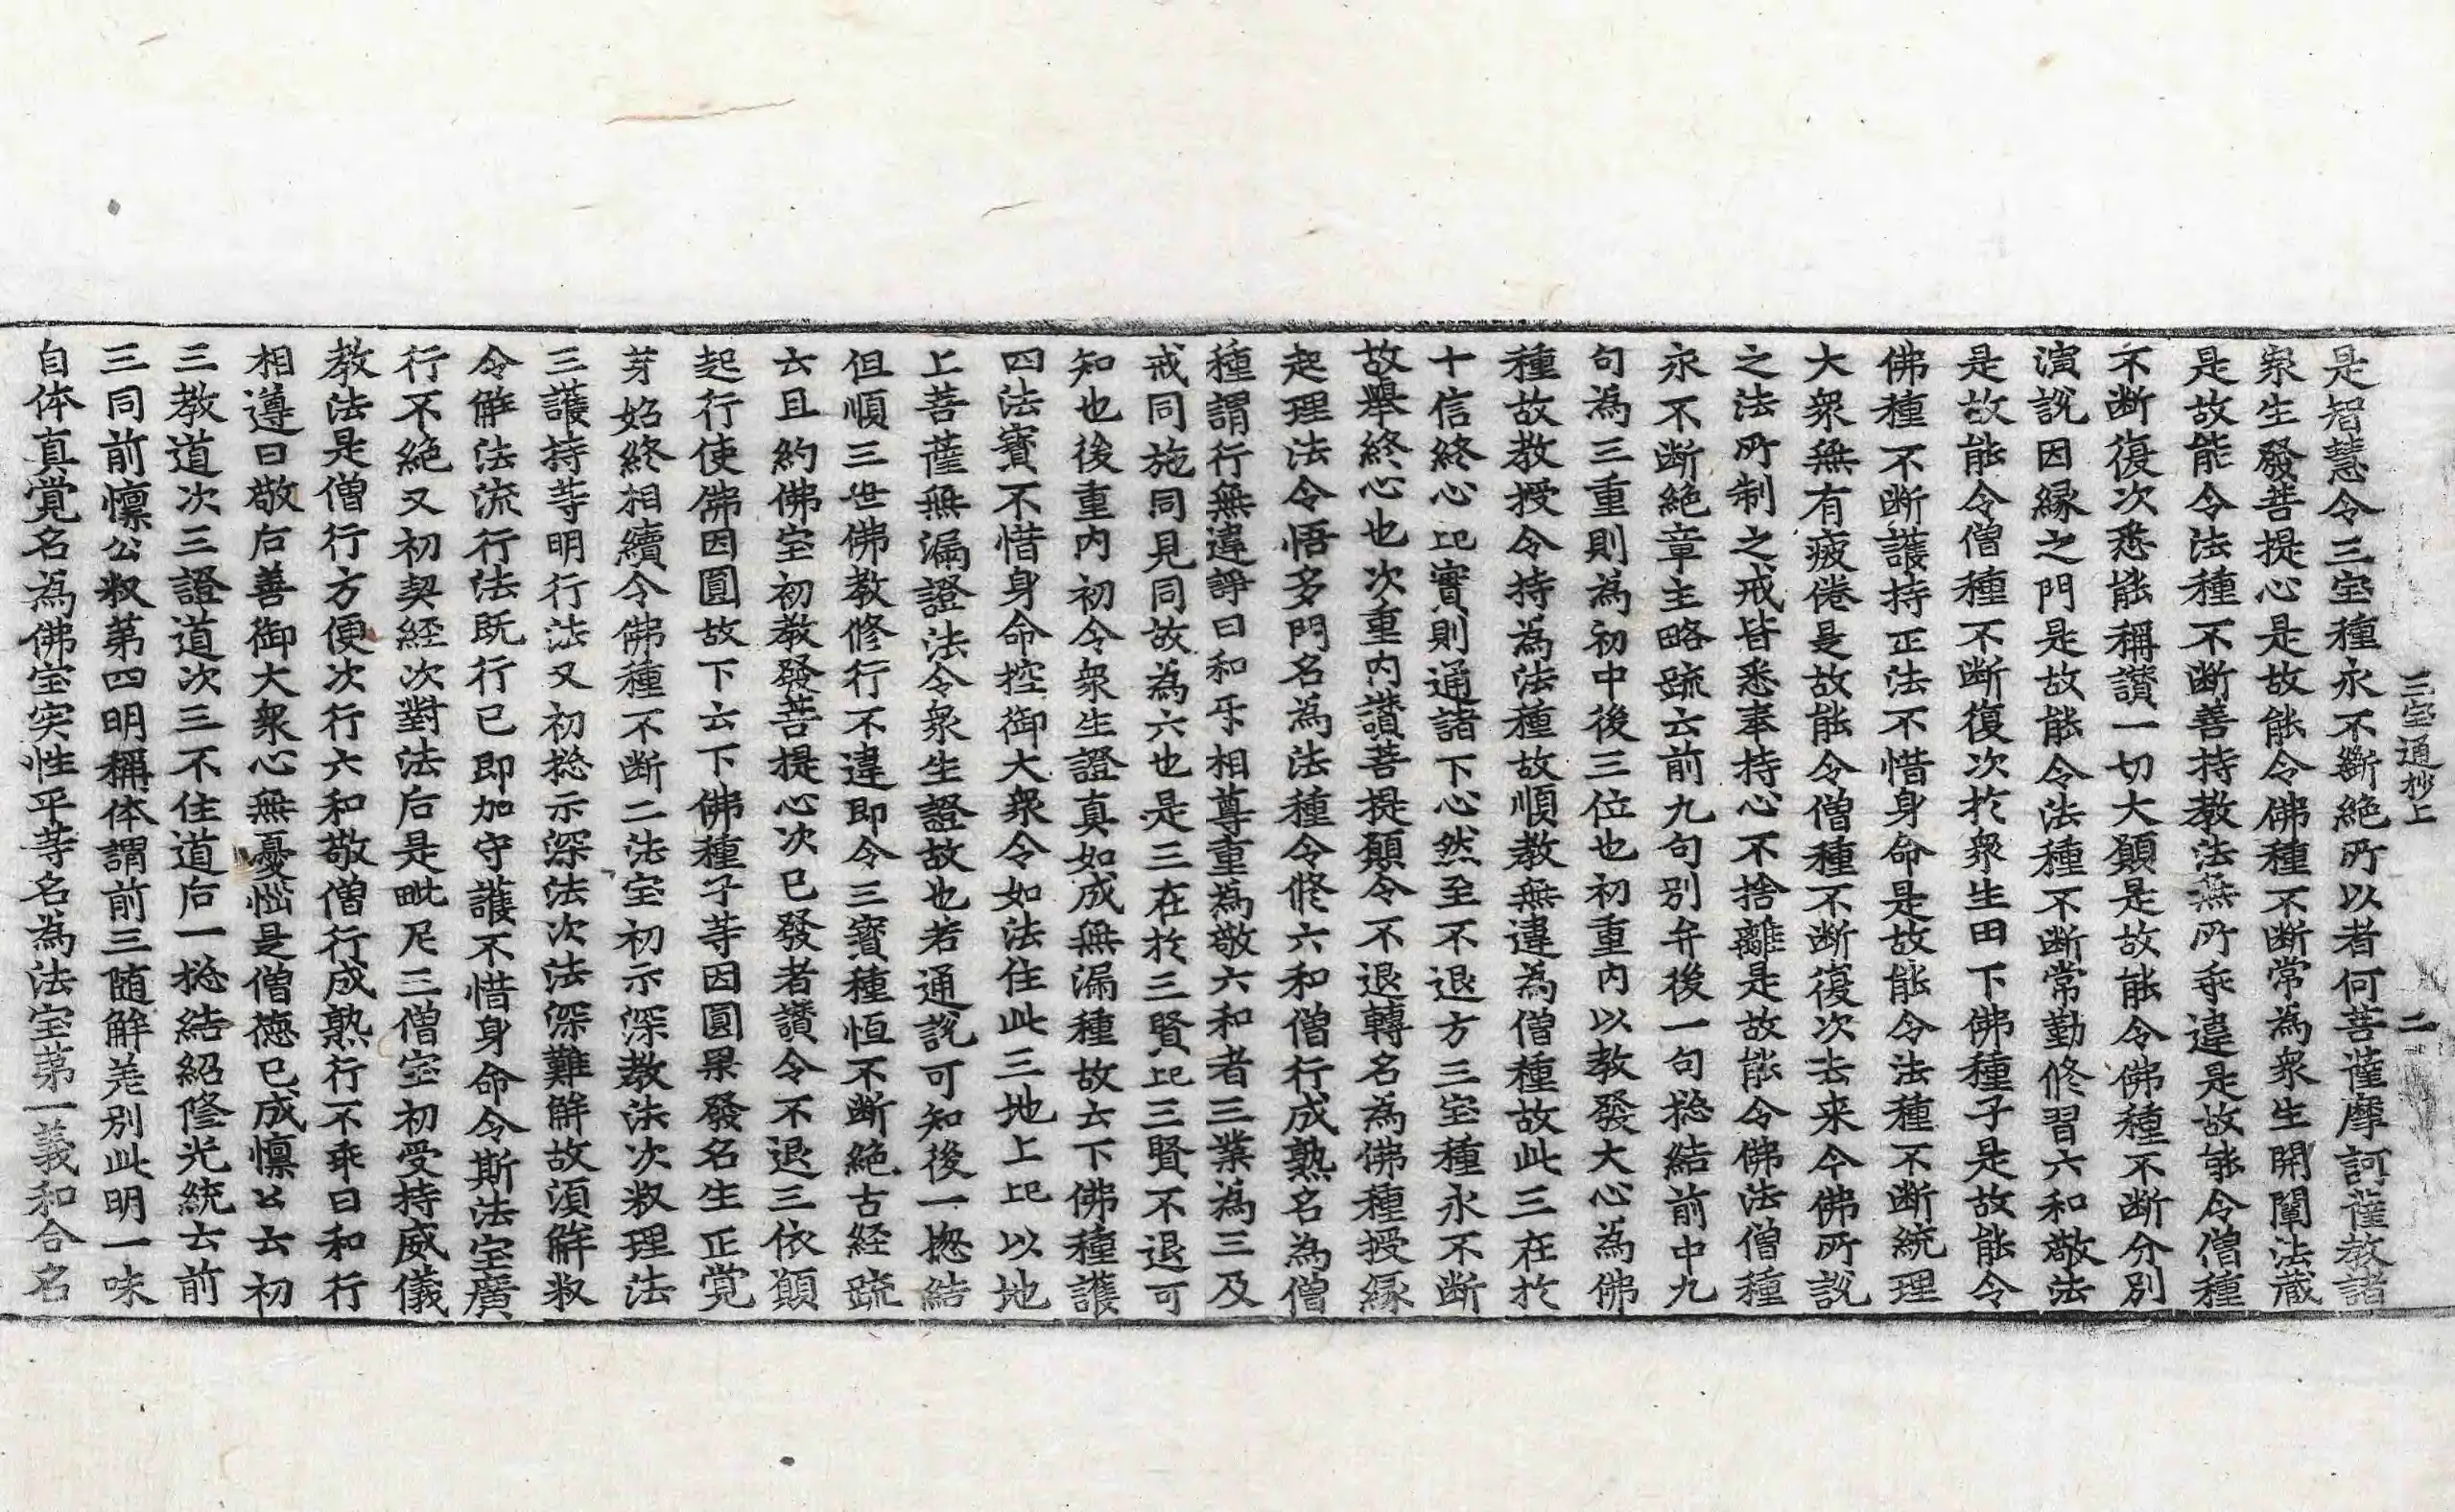 三宝通抄上 二
是智慧令三宝種永不斷絶所以者何菩薩摩訶薩教諸
衆生發菩提心是故能令佛種不断常為衆生開闡法蔵
是故能令法種不断善持教法無所乖違是故能令僧種
不断復次悉能稱讃一切大願是故能令佛種不断分別
演説因縁之門是故能令法種不断常勤修習六和敬法
是故能令僧種不断復次於衆生田下佛種子是故能令
佛種不断護持正法不惜身命是故能令法種不断統理
大衆無有疲倦是故能令僧種不断復次去来今佛所説
之法所制之戒皆悉奉持心不捨離是故能令佛法僧種
永不断絶章主略䟽云前九句別弁後一句捴結前中九
句為三重則為初中後三位也初重内以教發大心為佛
種故教授令持為法種故順教無違為僧種故此三在於
十信終心㠯實則通諸下心然至不退方三宝種永不断
故舉終心也次重内讃菩提願令不退轉名為佛種授縁
起理法令悟多門名為法種令修六和僧行成熟名為僧
種謂行無違諍曰和乐相尊重為敬六和者三業為三及
戒同施同見同故為六也是三在於三賢㠯三賢不退可
知也後重内初令衆生證真如成無漏種故云下佛種護
四法寳不惜身命控御大衆令如法住此三地上㠯以地
上菩薩無漏證法令衆生證故也若通説可知後一捴結
但順三世佛教修行不違即令三寳種恒不断絶古経䟽
云且約佛宝初教發菩提心次已發者讃令不退三依願
起行使佛因圓故下云下佛種子䓁因圓果發名生正覚
芽始終相續令佛種不断二法宝初示深教法次叙理法
三護持䓁明行法又初捴示深法次法深難解故湏解叙
令解法流行法既行已即加守護不惜身命令斯法宝廣
行不絶又初契経次對法后是毗尼三僧宝初受持威儀
教法是僧行方便次行六和敬僧行成熟行不乖曰和行
相遵曰敬后善御大衆心無憂惱是僧徳已成懍公云初
三教道次三證道次三不住道后一捴結紹隆光統云前
三同前懍公叙第四明稱体謂前三随解差別此明一味
自体真覚名為佛宝実性平䓁名為法宝第一義和合名